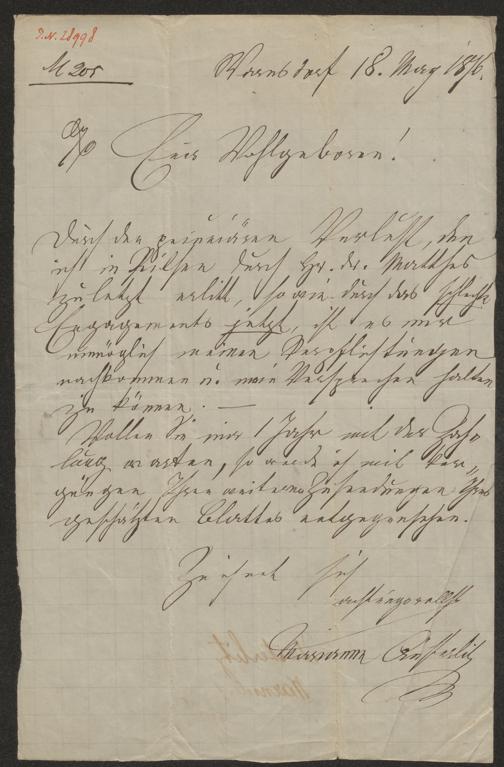 I.N. 28998
M 205
Warnsdorf 18. May 1876.
Euer Wohlgeboren!
Durch den pecuniären Verlust, den
ich in Pilsen durch Hr. Dr. Matthes
zuletzt erlitt, sowie durch das schlechte
Engagements jetzt, ist es mir
unmöglich meinen Verpflichtungen
nachkommen u. mein Versprechen halten
zu können. —
Wollen Sie mir 1 Jahr mit der Zah-
lung warten, so werde ich mit Ver-
gnügen Ihren weiteren Zusendungen Ihres
geschätzten Blattes entgegensehen.
Zeichnet sich
achtungsvollst
Marianne Austerlitz